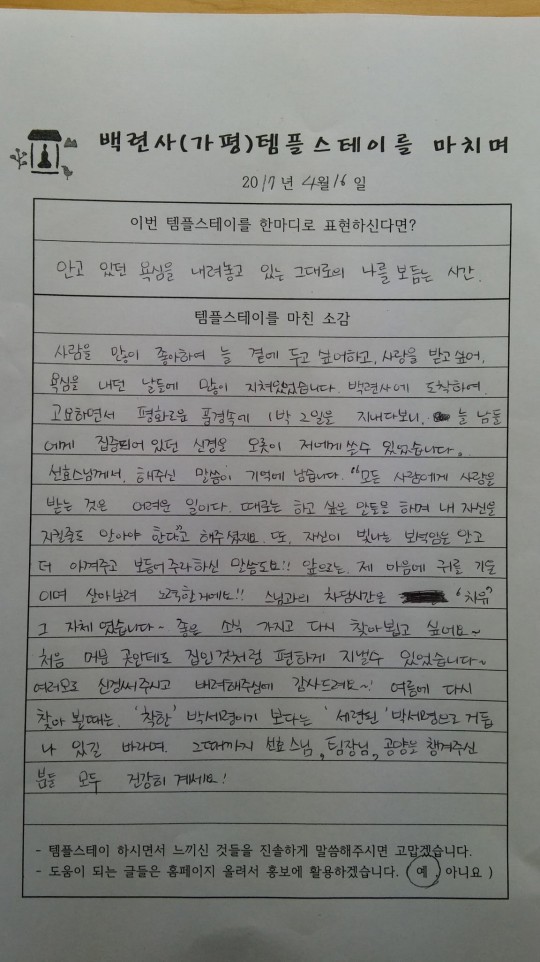 백련사(가평)템플스테이를 마치며
2017년 4월 16일
이번 템플스테이를 한마디로 표현하신다면?
안고 있던 욕심을 내려놓고 있는 그대로의 나를 보듬는 시간.
템플스테이를 마친 소감
사람을 많이 좋아하여 늘 곁에 두고 싶어하고, 사랑을 받고 싶어,
욕심을 내던 날들에 많이 지쳐있었습니다. 백련사에 도착하여,
고요하면서 평화로운 풍경속에 1박 2일을 지내다보니, 늘 남들
에게 집중되어 있던 신경을 오롯이 저에게 쓸수 있었습니다.
선효스님께서, 해주신 말씀이 기억에 남습니다. "모든 사람에게 사랑을
받는 것은 어려운 일이다. 때로는 하고 싶은 말들을 하며 내 자신을
지킬줄도 알아야 한다"고 해주셨지요. 또, 자신이 빛나는 보석임을 알고
더 아껴주고 보듬어주라하신 말씀도요!! 앞으로는, 제 마음에 귀를 기울
이며 살아보려 노력할거에요!! 스님과의 차담시간은 "치유"
그 자체 였습니다~ 좋은 소식 가지고 다시 찾아뵙고 싶어요~
처음 머문 곳인데도 집인것처럼 편하게 지낼수 있었습니다~
여러모로 신경써주시고 배려해주심에 감사드려요~! 여름에 다시
찾아 뵐때는, '착한' 박세령이기 보다는 '세련된' 박세령으로 거듭
나 있길 바라며, 그때까지 선효스님, 팀장님, 공양을 챙겨주신
분들 모두 건강히 계세요!
- 템플스테이 하시면서 느끼신 것들을 진솔하게 말씀해주시면 고맙겠습니다.
- 도움이 되는 글들은 홈페이지 올려서 홍보에 활용하겠습니다. ( 예, 아니요 )